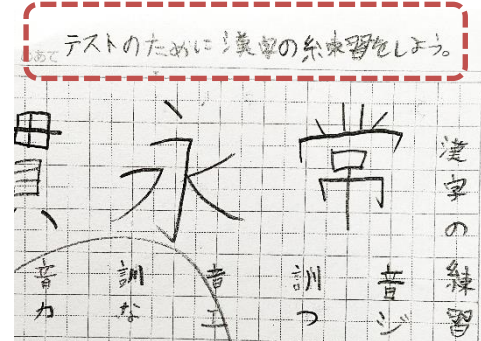 めあて
テストのために漢字の練習をしよう。
漢字の練習
常
音ジ
訓つ
永
音エ
訓な
貫
音カ